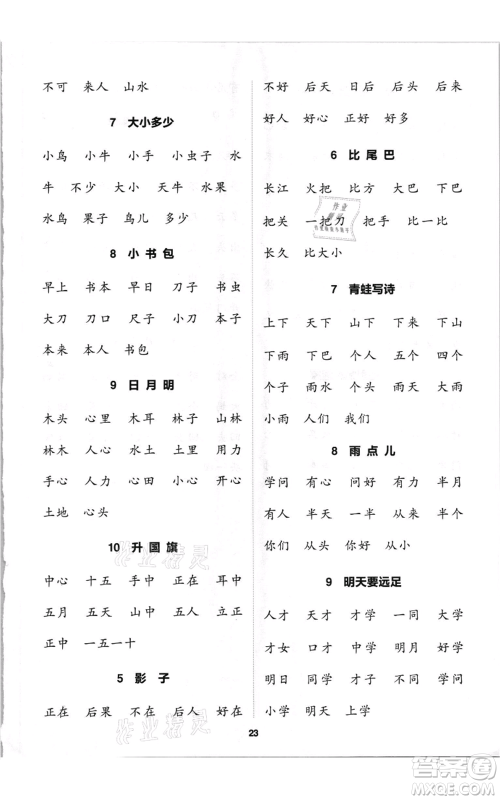 不可 来人 山水
7 大小多少
小鸟 小牛 小手 小虫子 水
牛 不少 大小 天牛 水果
水鸟 果子 鸟儿 多少
8 小书包
早上 书本 早日 刀子 书虫
大刀 刀口 尺子 小刀 本子
本来 本人 书包
9 日月明
木头 心里 木耳 林子 山林
林木 人心 水土 土里 用力
手心 人力 心田 开心 小心
土地 心头
10 升国旗
中心 十五 手中 正在 耳中
五月 五天 立正 天中 立国
正中 一五一十
5 影子
正在 后果 不在 后人 好在
不好 后天 日后 后头 后来
好人 好心 正好 好多
6 比尾巴
长江 火把 比方 大巴 下巴
把关 一把刀 把手 比一比
长久 比大小
7 青蛙写诗
上下 天下 下水 下来 下山
下雨 下巴 个人 五个 四个
个子 雨水 个头 雨天 大雨
小雨 人们 我们
8 雨点儿
学问 有心 问好 有力 半月
有人 半天 从不 从来 从前
你们 从头 从心 从小
9 明天要远足
人才 天才 才学 一同 大学
才女 口才 中学 明月 好学
明日 同学 同心 开学 学好
小学 明天 上学
23
作业精灵
作业精灵
答案圈
MXQE.COM